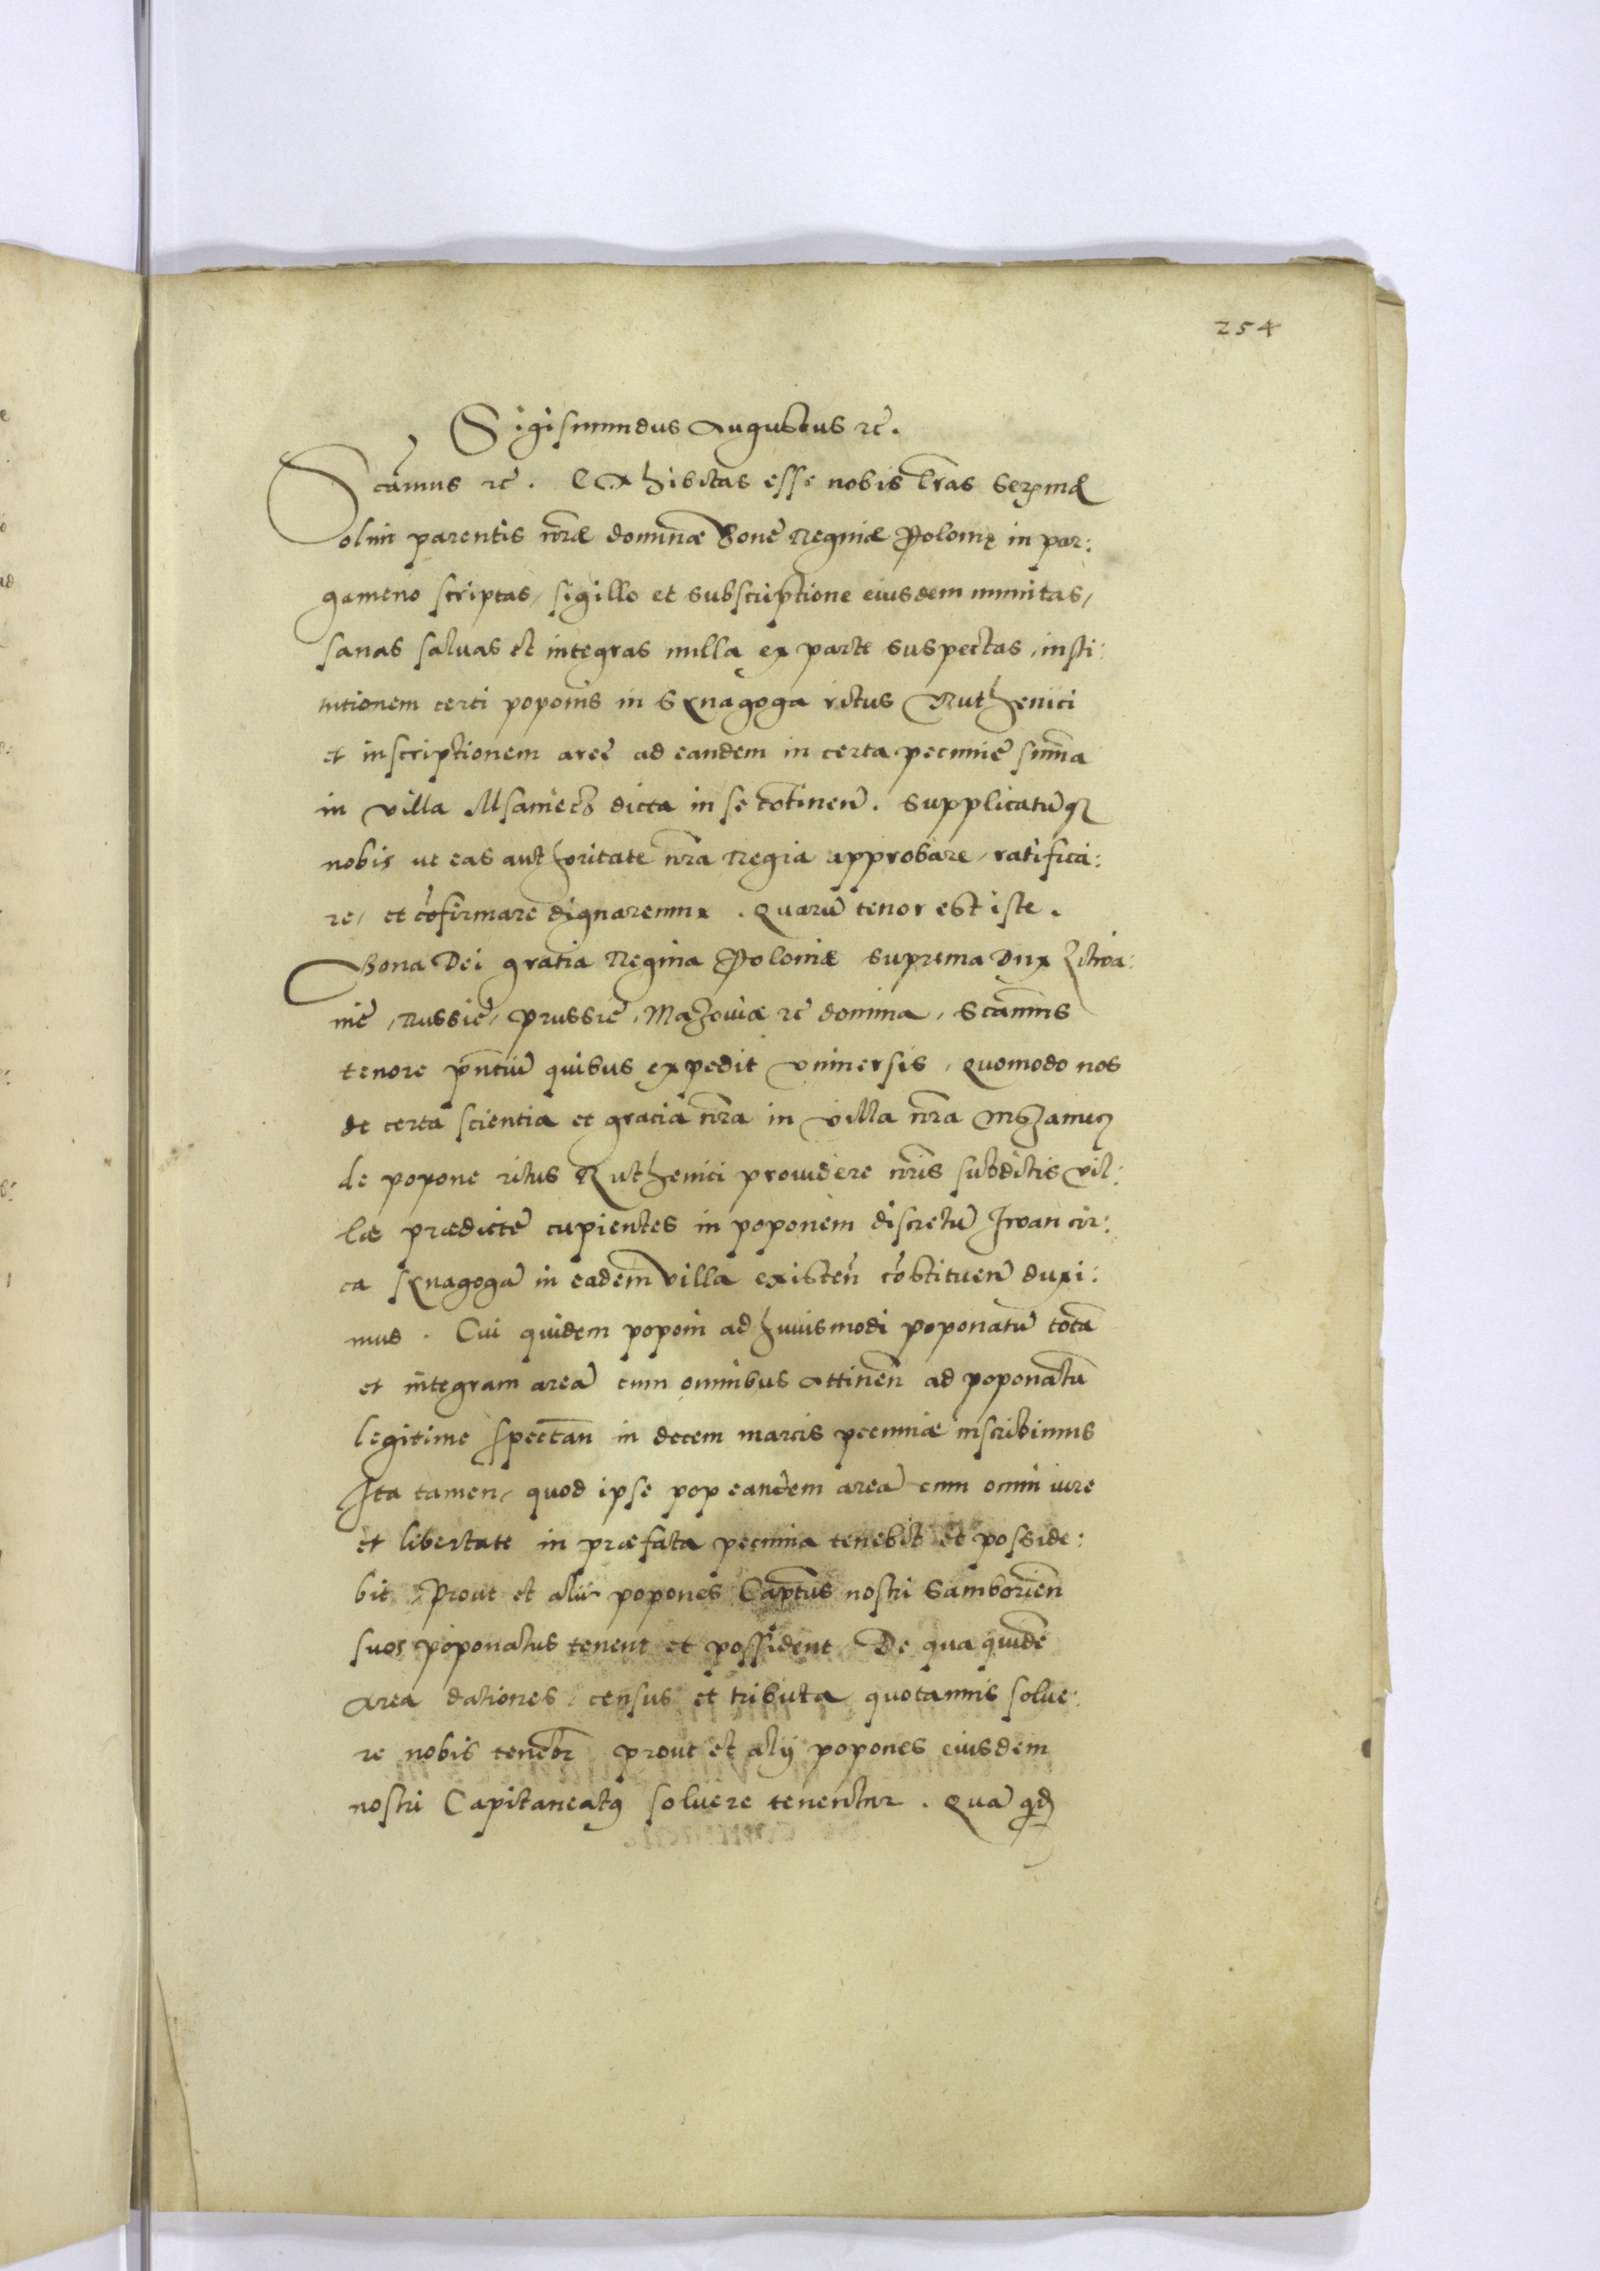 254
Sigismundus Augustus rc̃.
Scām̃us rc̃. Exhibitas esse nobis l̃ras Serm̃æ
olim parentis nr̃æ dominæ Bonẽ Reginæ Polonię in par:
gameno scriptas, sigillo et subscriptione eiusdem munitas,
sanas saluas et integras nulla ex parte suspectas, insti:
tutionem certi poponis in Synagoga ritus Ruthenici
et inscriptionem areẽ ad eandem in certa pecuniẽ sum̃a
in villa Msaniecz dicta in se cõtinen̄. Supplicatumq̃
nobis ut eas authoritate nr̃a Regia approbare, ratifica:
re, et cõfirmare dignaremur. Quarũ tenor est iste.
Bona Dei gratia Regina Poloniæ suprema Dux Litwa:
niẽ, Russiẽ, Prussiẽ, Mazowiæ rc̃ domina, Scām̃us
tenore pñtiũ quibus expedit vniuersis, quomodo nos
de certa scientia et gracia nr̃a in villa nr̃a Mszaniecz
de popone ritus Ruthenici prouidere nr̃is subditis vil:
læ prædictẽ cupientes in poponem discretũ Iwan cir:
ca synagogã in eadem villa existeñ cõstituen̄ duxi:
mus. Cui quidem poponi ad huiusmodi poponatũ totã
et integram areã cum omnibus attinen̄ ad poponatũ
legitime spectan̄ in decem marcis pecuniæ inscribimus
Ita tamen, quod ipse pop eandem areã cum omni iure
et libertate in præfata pecunia tenebit et posside:
bit prout et alii popones Captũs nostri Samborien̄
suos poponatus tenent et possident. De qua quidẽ
area dationes, census et tributa quotannis solue:
re nobis tenebr̃ prout et alij popones eiusdem
nostri Capitaneatꝰ soluere tenentur. Quã qd̃